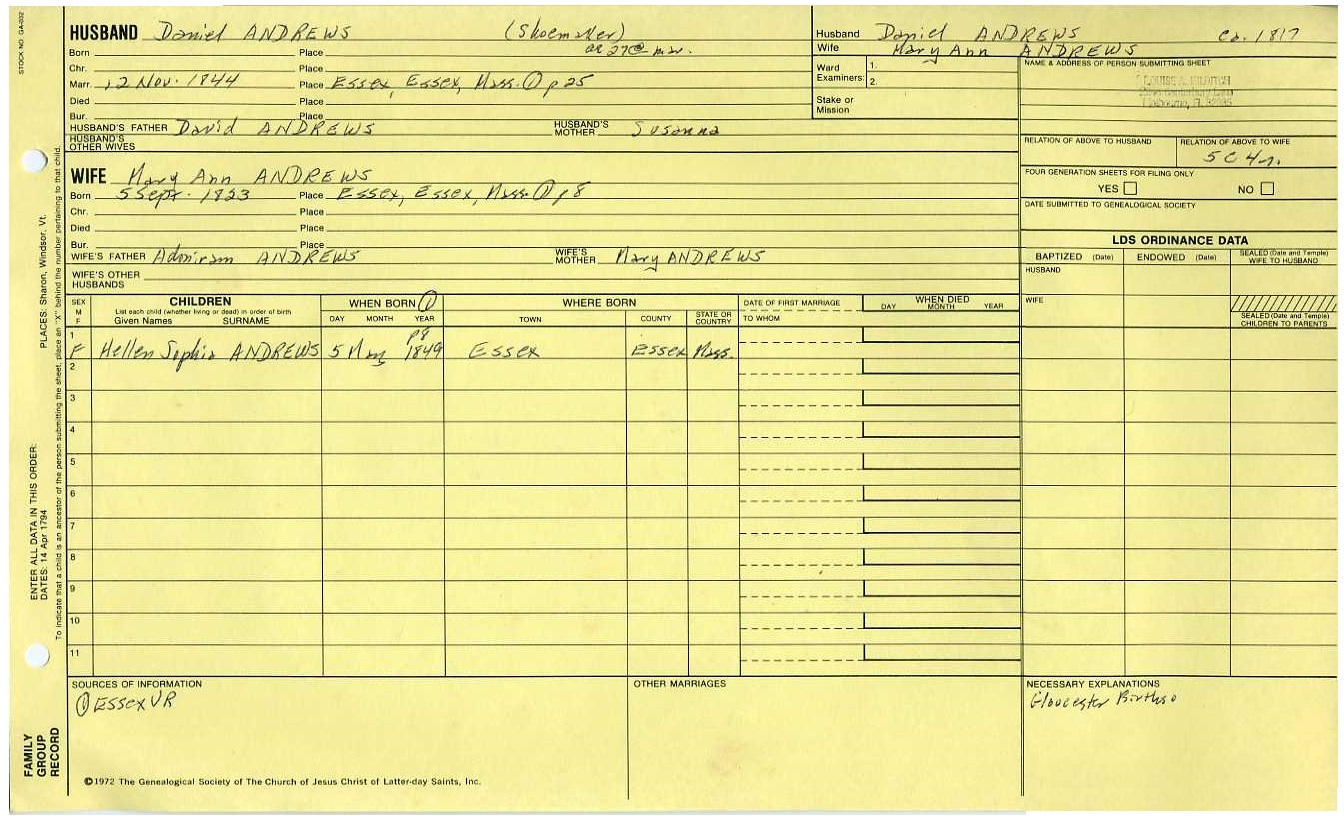 STOCK NO. GA-032
HUSBAND Daniel ANDREWS (Shoemaker)
Born Place ae 27 @ mar.
Chr. Place
Marr. 12 Nov. 1844 Place Essex, Essex, Mass. ① p 25
Died Place
Bur. Place
HUSBAND'S FATHER David ANDREWS HUSBAND'S MOTHER Susanna
HUSBAND'S OTHER WIVES
WIFE Mary Ann ANDREWS
Born 5 Sept. 1823 Place Essex, Essex, Mass. ① p 8
Chr. Place
Died Place
Bur. Place
WIFE'S FATHER Adoniram ANDREWS WIFE'S MOTHER Mary ANDREWS
WIFE'S OTHER HUSBANDS
Husband Daniel ANDREWS ca. 1817
Wife Mary Ann ANDREWS
Ward Examiners: 1.
2.
Stake or Mission
NAME & ADDRESS OF PERSON SUBMITTING SHEET
LOUISE A.
RELATION OF ABOVE TO HUSBAND RELATION OF ABOVE TO WIFE
5C4r.
FOUR GENERATION SHEETS FOR FILING ONLY
YES NO
DATE SUBMITTED TO GENEALOGICAL SOCIETY
LDS ORDINANCE DATA
BAPTIZED (Date) ENDOWED (Date) SEALED (Date and Temple) WIFE TO HUSBAND
HUSBAND
WIFE
SEALED (Date and Temple) CHILDREN TO PARENTS
SEX M F
CHILDREN
List each child (whether living or dead) in order of birth
Given Names SURNAME
WHEN BORN ①
DAY MONTH YEAR
WHERE BORN
TOWN COUNTY STATE OR COUNTRY
DATE OF FIRST MARRIAGE
TO WHOM
WHEN DIED
DAY MONTH YEAR
1 p 8
F Hellen Sophia ANDREWS 5 May 1849 Essex Essex Mass.
2
3
4
5
6
7
8
9
10
11
SOURCES OF INFORMATION
① Essex VR
OTHER MARRIAGES
NECESSARY EXPLANATIONS
Gloucester Births
©1972 The Genealogical Society of The Church of Jesus Christ of Latter-day Saints, Inc.
PLACES: Sharon, Windsor, Vt.
ENTER ALL DATA IN THIS ORDER:
DATES: 14 Apr 1794
To indicate that a child is an ancestor of the person submitting the sheet, place an "X" behind the number pertaining to that child.
FAMILY
GROUP
RECORD